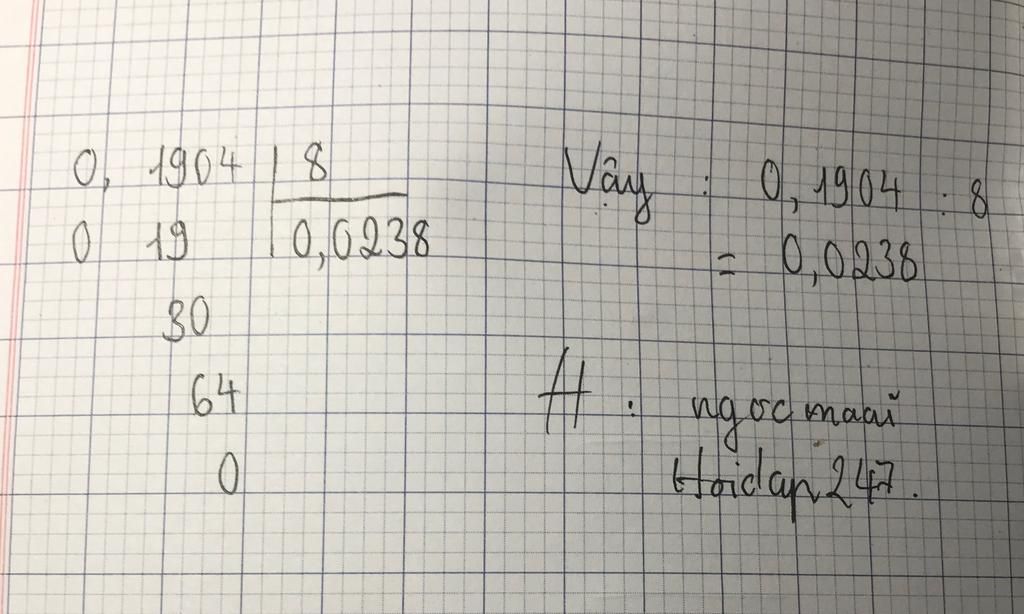 0, 1904 | 8
0 19 | 0,0238
30
64
0
Vậy : 0,1904 : 8
= 0,0238
: ngocmaai
Hoidap247.